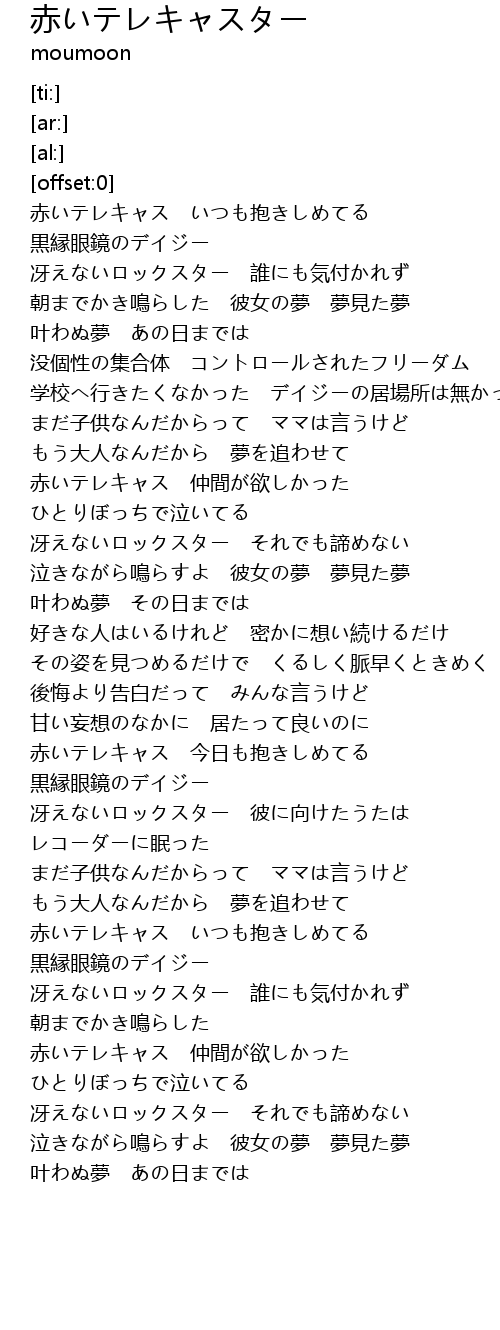 赤いテレキャスター
moumoon
[ti:]
[ar:]
[al:]
[offset:0]
赤いテレキャス　いつも抱きしめてる
黒縁眼鏡のデイジー
冴えないロックスター　誰にも気付かれず
朝までかき鳴らした　彼女の夢　夢見た夢
叶わぬ夢　あの日までは
没個性の集合体　コントロールされたフリーダム
学校へ行きたくなかった　デイジーの居場所は無か
まだ子供なんだからって　ママは言うけど
もう大人なんだから　夢を追わせて
赤いテレキャス　仲間が欲しかった
ひとりぼっちで泣いてる
冴えないロックスター　それでも諦めない
泣きながら鳴らすよ　彼女の夢　夢見た夢
叶わぬ夢　その日までは
好きな人はいるけれど　密かに想い続けるだけ
その姿を見つめるだけで　くるしく脈早くときめく
後悔より告白だって　みんな言うけど
甘い妄想のなかに　居たって良いのに
赤いテレキャス　今日も抱きしめてる
黒縁眼鏡のデイジー
冴えないロックスター　彼に向けたうたは
レコーダーに眠った
まだ子供なんだからって　ママは言うけど
もう大人なんだから　夢を追わせて
赤いテレキャス　いつも抱きしめてる
黒縁眼鏡のデイジー
冴えないロックスター　誰にも気付かれず
朝までかき鳴らした
赤いテレキャス　仲間が欲しかった
ひとりぼっちで泣いてる
冴えないロックスター　それでも諦めない
泣きながら鳴らすよ　彼女の夢　夢見た夢
叶わぬ夢　あの日までは